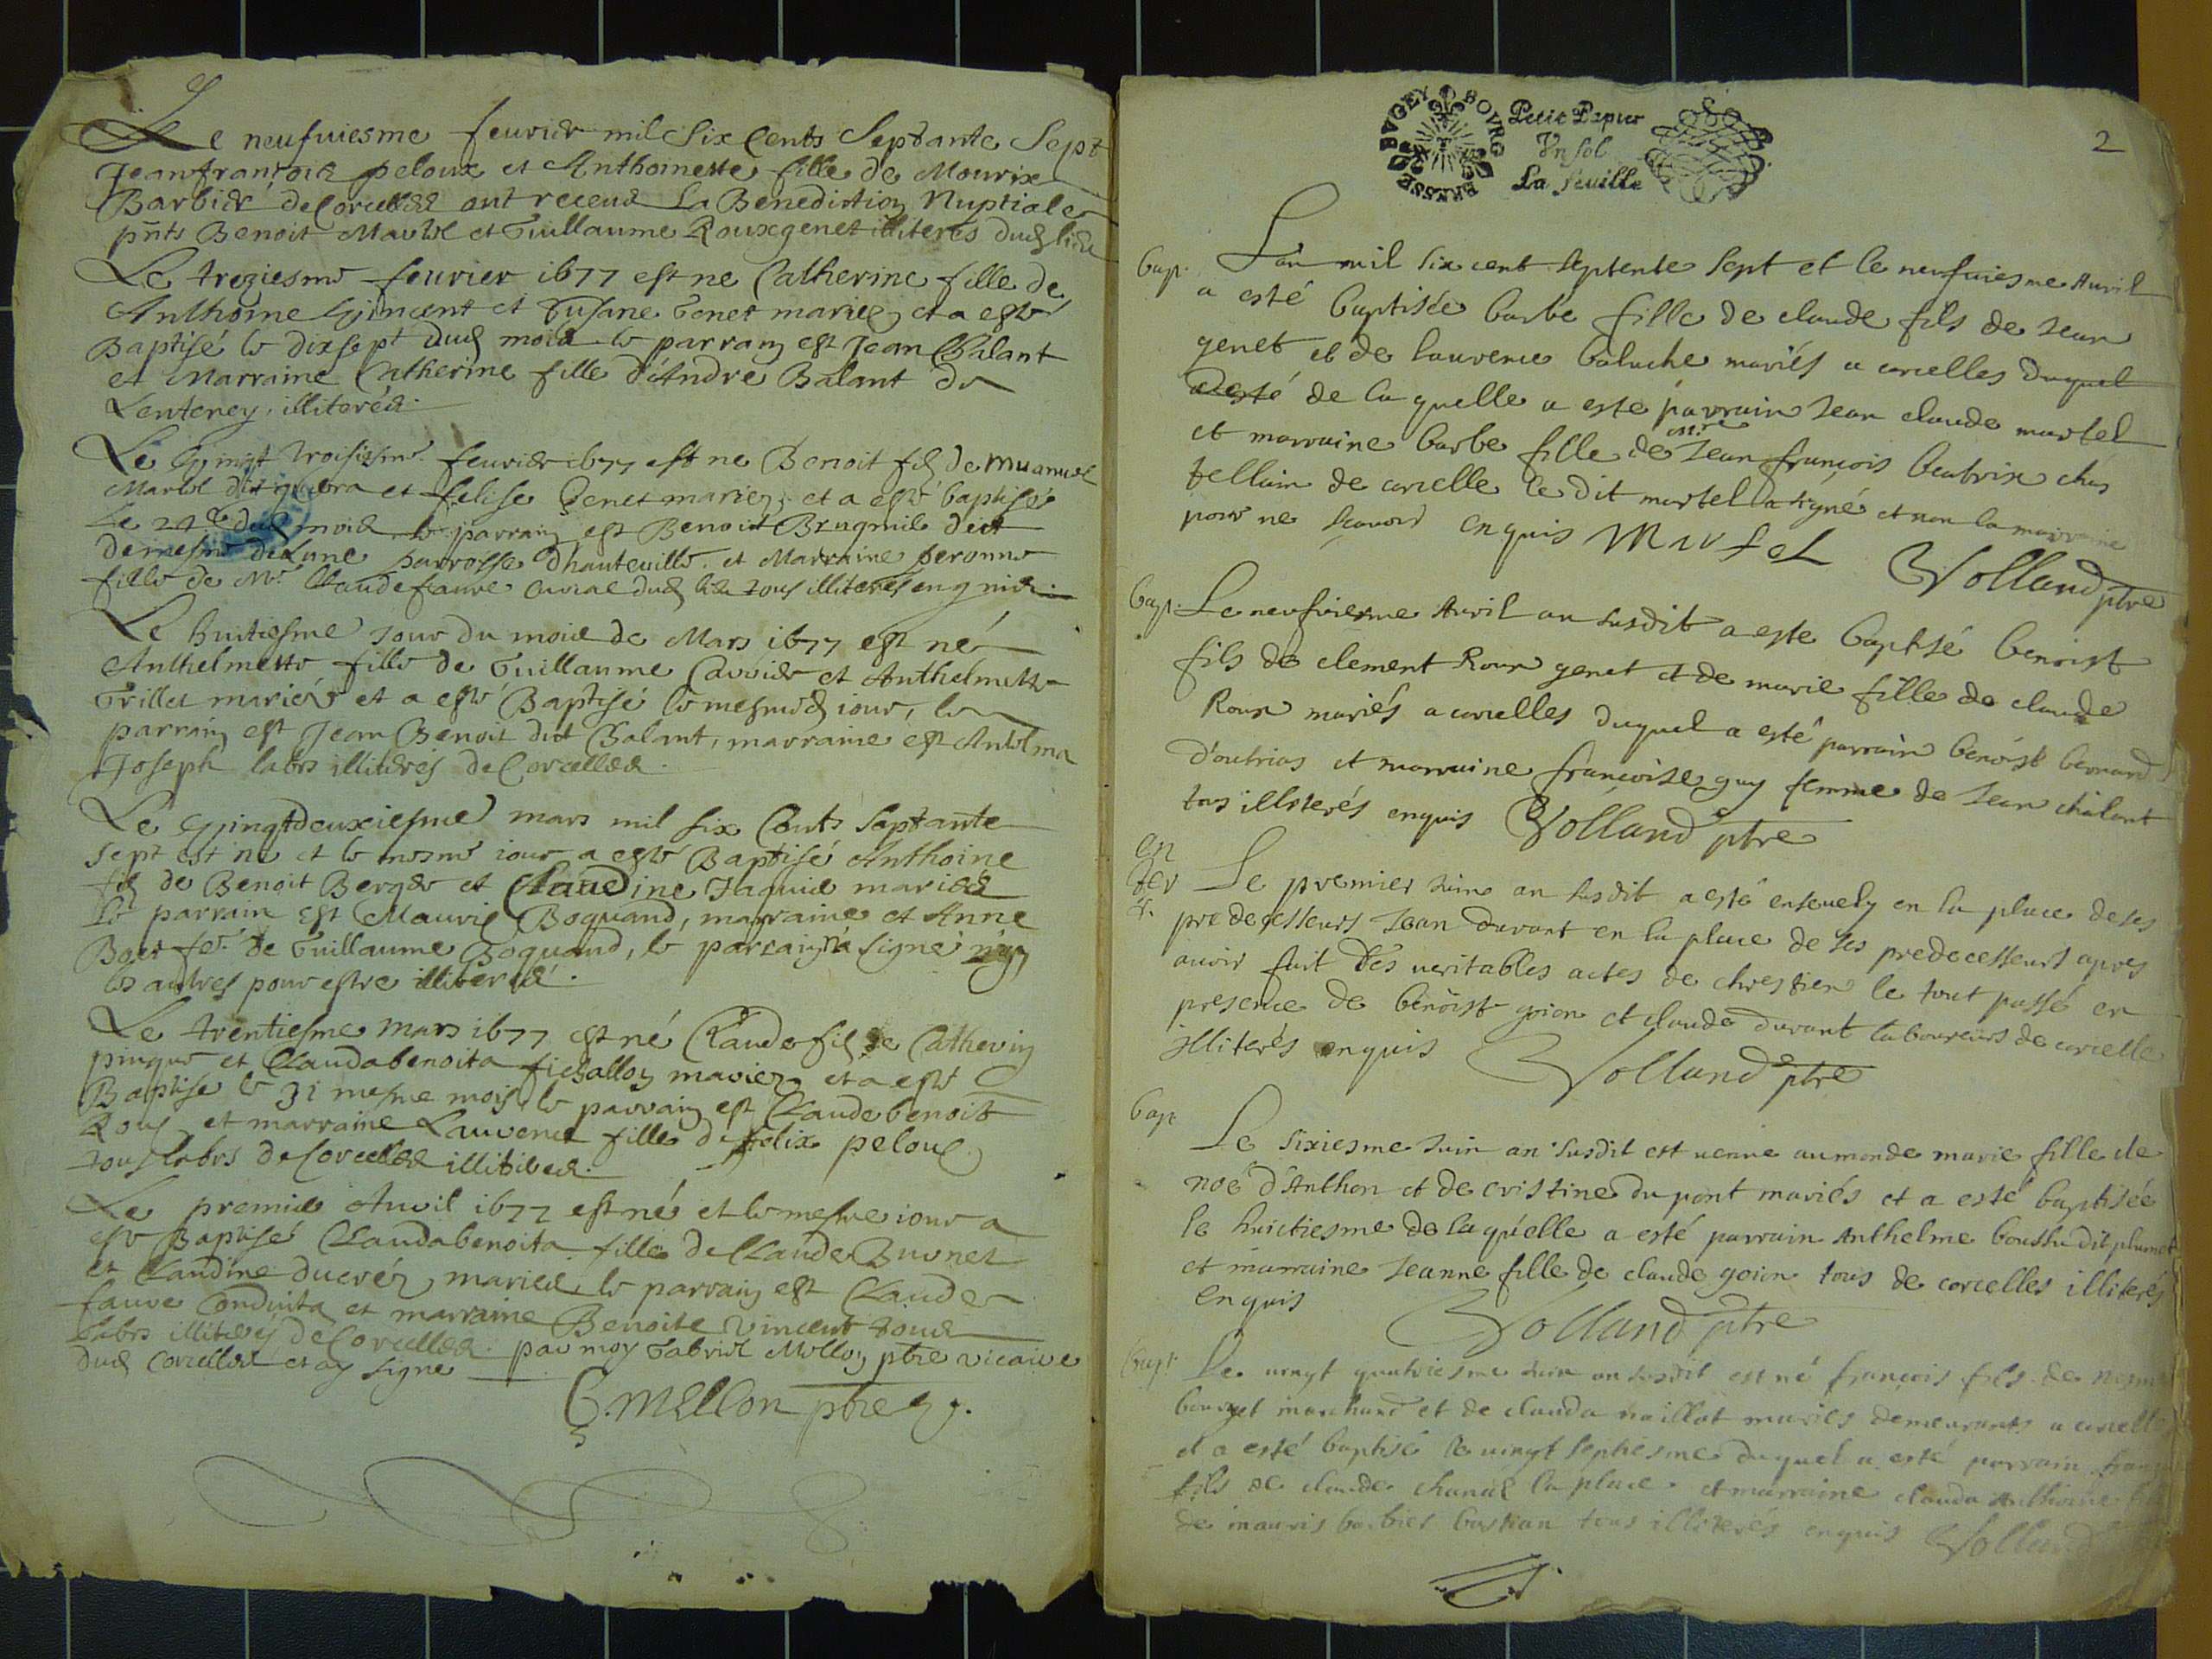 Le neufuiesme feurier mil Six Cents Septante Sept
Jean françois peloux et Anthoinette fille de Mourix
Barbier de Corcelles ont receus La Benediction Nuptiale
pnts Benoit Martel et Guillaume Rouxgenet illiteres dud lieu
Le treziesme feurier 1677 est ne Catherine fille de
Anthoine Vincent et Susane Genet mariez et a esté
Baptisé le dixsept dud mois le parrain est Jean Chalant
et Marraine Catherine fille d'André Balant de
Lenteney, illiterés.
Le Vingt troisiesme feurier 1677 est ne Benoit fils de Muanuel
Martel dit et felise Genet mariez, et a esté baptisé
Le 24e dud mois le parrain est Benoit dict
demesme de Lune parroisse dhauteville et Marraine peronne
fille de Mre Claude faure Curial dud lieu tous illiteres enquis.
Le huitiesme jour du mois de Mars 1677 est né
Anthelmette fille de Guillaume Carrier et Anthelmette
Grillet mariés et a esté Baptisé le mesmed iour, le
parrain est Jean Benoit dict Chalant, marraine est
Joseph labrs illiterés de Corcelles.
Le Vingtdeuxiesme mars mil six Cents Septante
sept est né et le mesme iour a esté Baptisé Anthoine
fils de Benoit Berger et Claudine Jaquie mariés
le parrain est Mauris Boquand, marraine et Anne
Boet fe de Guillaume Boquand, le parrain n'a signé n'y
les autres pour estre illiterés.
Le trentiesme mars 1677 est né Claude fils de Catherin
et Claudabenoita fichallon mariez et a esté
Baptise le 31 mesme mois le parrain est Claude benoit
Roux et marraine Laurence fille de felix peloux
tous labrs de Corcelles illiteres.
Le premier Auril 1677 est né et le mesme iour a
esté Baptisé Claudabenoita fille de Claude Burnet
et Claudine ducréz mariés, le parrain est Claude
faure Conduita et marraine Benoite Vincent tous
labrs illiterés de Corcelles. par moy Gabriel Mellon ptre vicaire
dud Corcelles et ay signe
G. Mellon ptre
BRESSE BVGEY BOVRG
Petit Papier
Vn sol
La feuille
2
bap. L'an mil six cent septente sept et le neufuiesme Auril
a esté baptisée barbe fille de claude fils de Jean
genet et de laurence baluche mariés a corcelles duquel
a esté de la quelle a esté parrain Jean claude martel
et marraine barbe fille de Jean françois beatrix chas
tellain de corcelle le dit martel a signé et non la marraine
pour ne scauoir enquis Martel Volland ptre
bap. Le neufuiesme Auril an susdit a este baptisé benoist
fils de clement Roux genet et de marie fille de claude
Roux mariés a corcelles duquel a esté parrain benoist bernard
d'outrias et marraine françoise guy femme de Jean chalant
tous illiterés enquis Volland ptre
en
ter
r.
Le premier Juin an susdit a esté enseuely en la place de ses
predecesseurs Jean durant en la place de ses predecesseurs apres
auoir fait des ueritables actes de chrestien le tout passé en
presence de benoist goion et claude durant laboureurs de corcelle
illiterés enquis Volland ptre
bap Le sixiesme Juin an susdit est uenue au monde marie fille de
noé d'Anthon et de cristine du pont mariés et a esté baptisée
le huictiesme de laquelle a esté parrain Anthelme boussu dit plumet
et marraine Jeanne fille de claude goion tous de corcelles illiterés
enquis Volland ptre
bapt. Le uingt quatriesme Juin an susdit est né françois fils de
bourget marchand et de clauda maillot mariés demeurants a corcelle
et a esté baptisé le uingt septiesme duquel a esté parrain
fils de claude chanal la place et marraine clauda Anthoine
de mauris barbier bastian tous illiterés enquis Volland